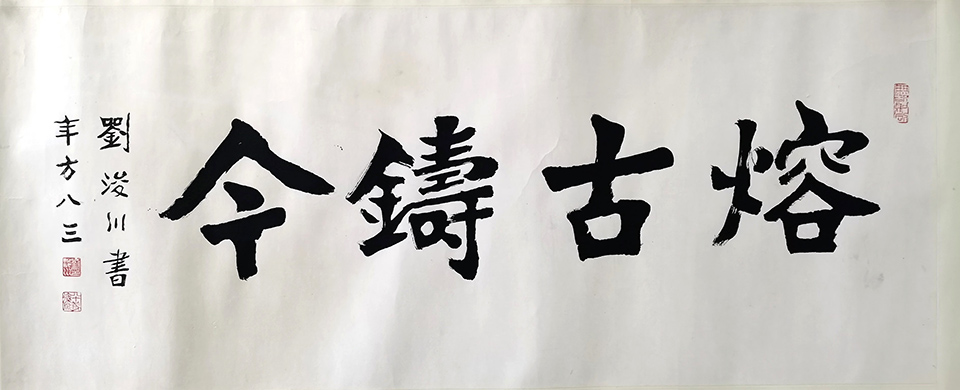 熔古鑄今
劉浚川書
年方八三